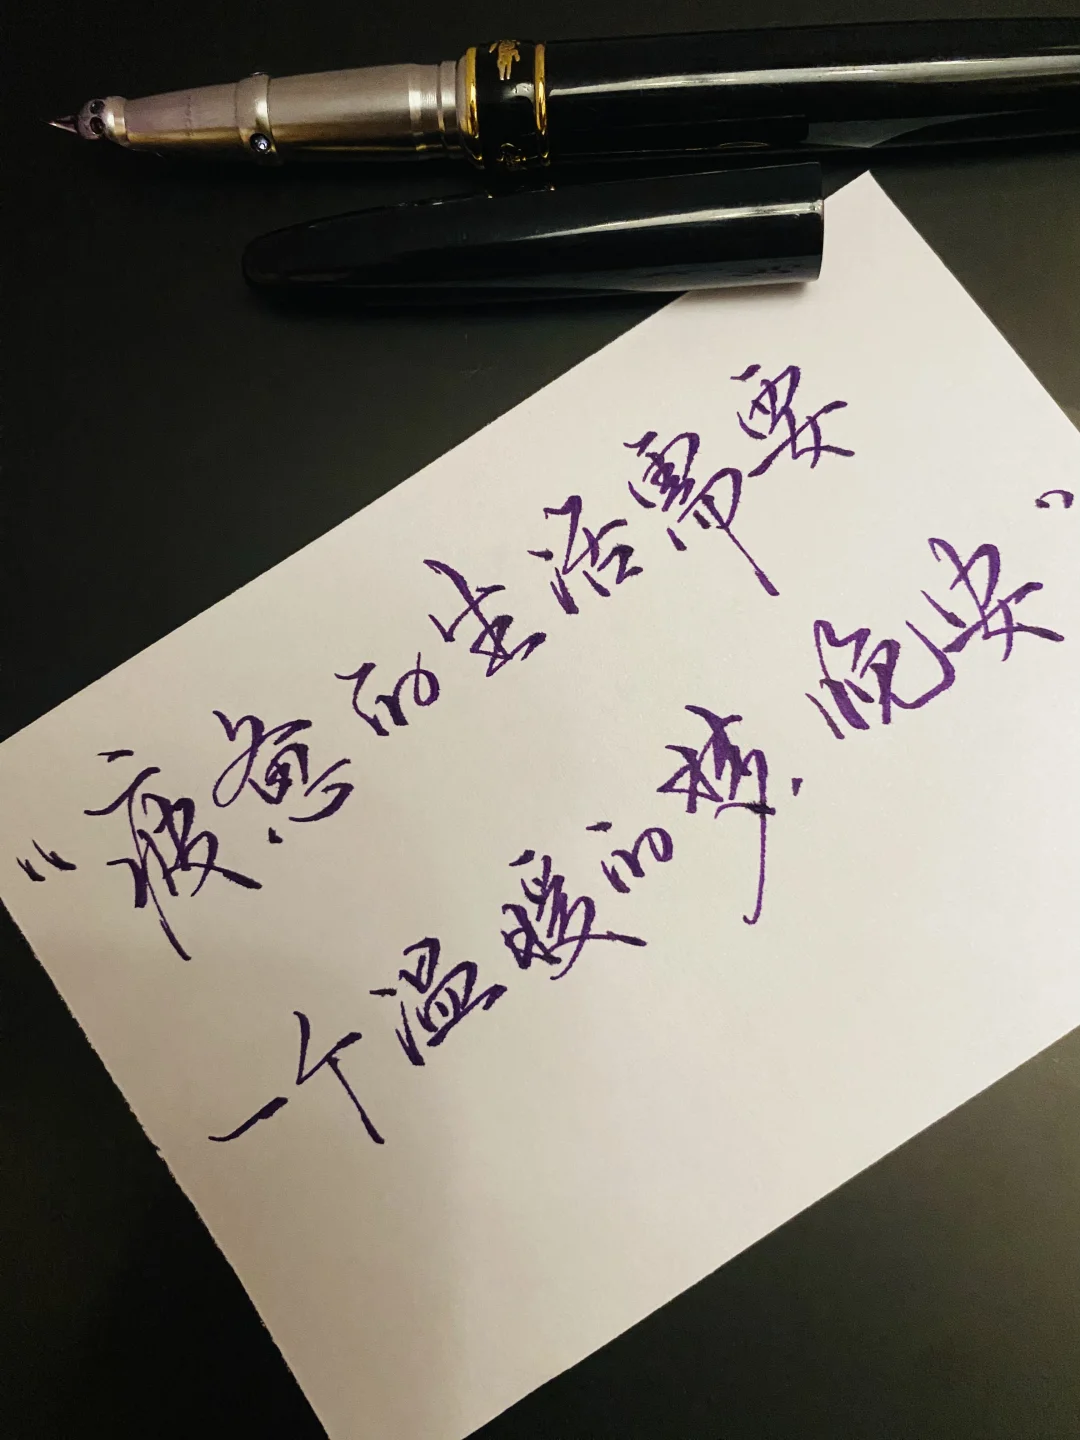 “疲惫的生活需要
一个温暖的梦.晚安”